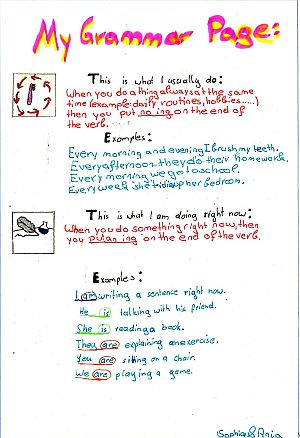 My Grammar Page:
This is what I usually do:
When you do a thing always at the same
time (example: daily routines, hobbies.....)
then you put no ing on the end of
the verb.
Examples:
Every morning and evening I brush my teeth.
Every afternoon they do their homework.
Every morning we go to school.
Every week she tidies up her bedroom.
This is what I am doing right now:
When you do something right now, then
you put an ing on the end of the verb.
Examples:
I am writing a sentence right now.
He is talking with his friend.
She is reading a book.
They are explaining an exercise.
You are sitting on a chair.
We are playing a game.
Sophia &